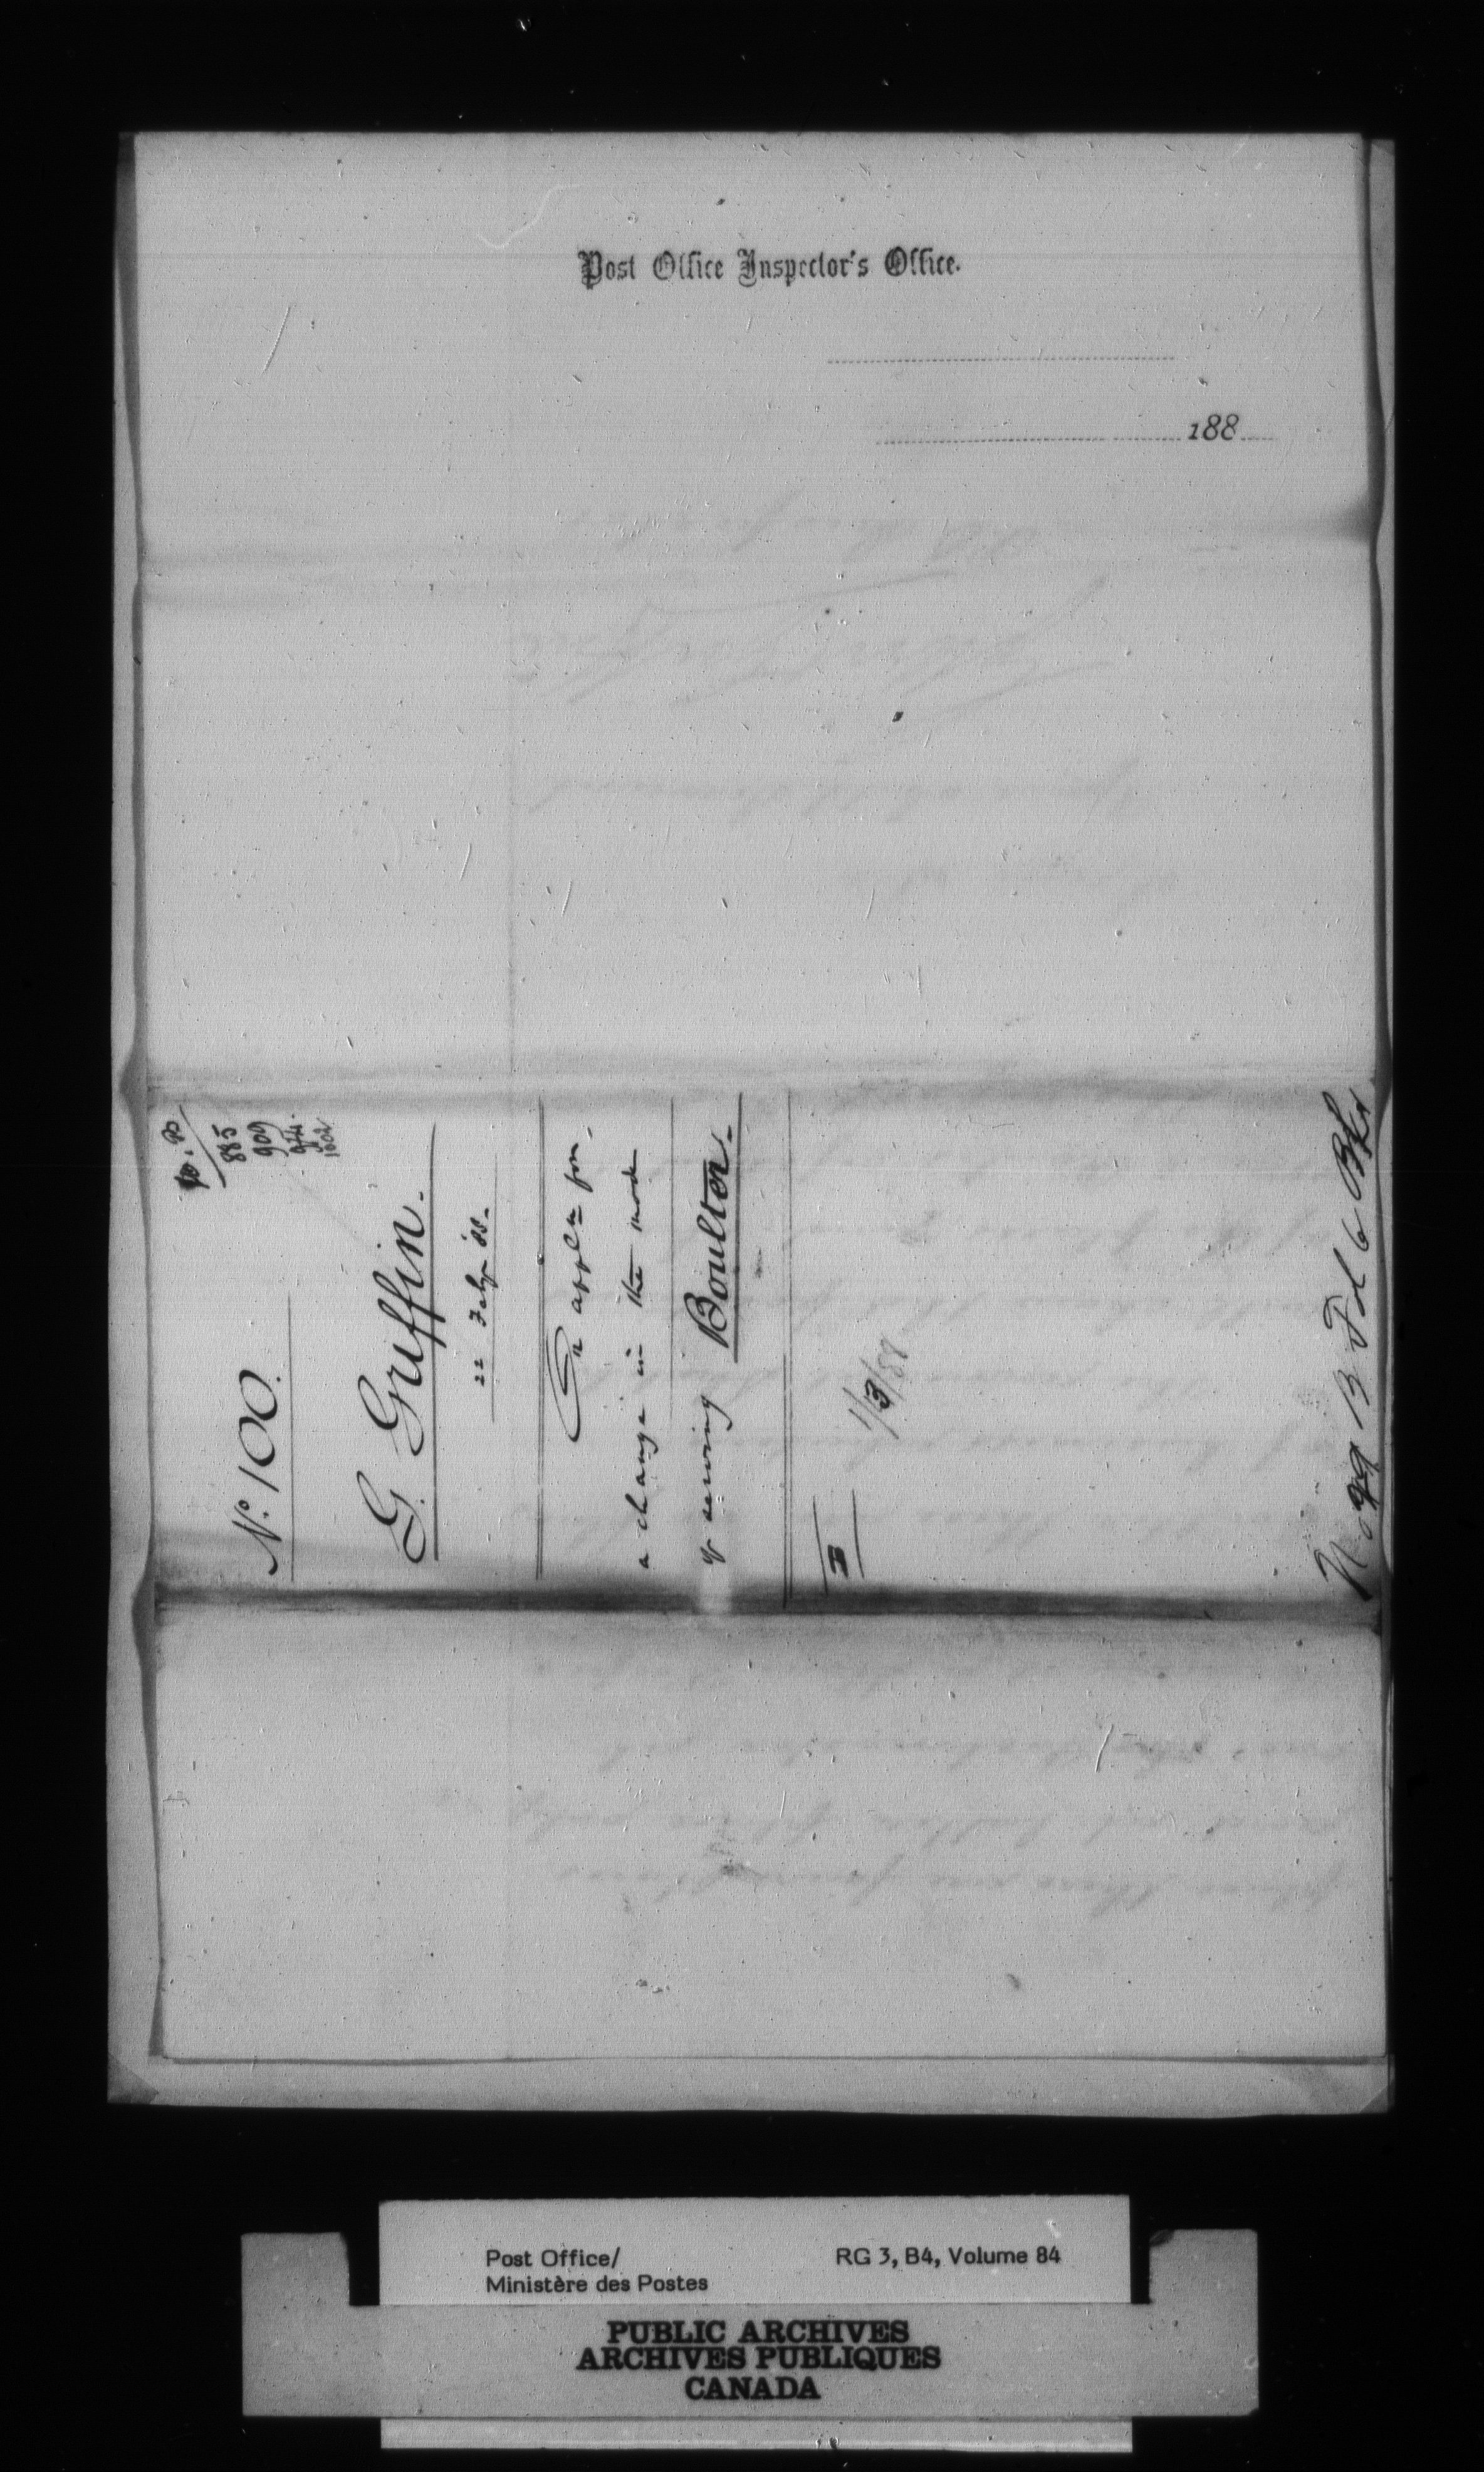 Post Office Inspector's Office.
188
885
909
944
1002
No. 100.
G. Griffin.
22 Feby '88.
On appln for
a change in the mode
of serving Boulter.
1/3/88
B Fol 6
Post Office/
Ministère des Postes
RG 3, B4, Volume 84
PUBLIC ARCHIVES
ARCHIVES PUBLIQUES
CANADA